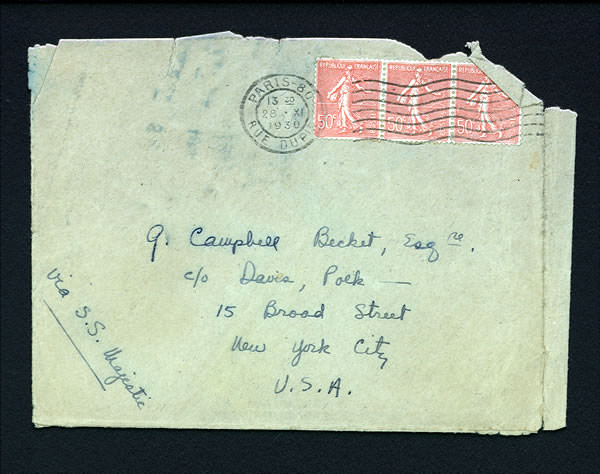 REPUBLIQUE FRANÇAISE REPUBLIQUE FRANÇAISE REPUBLIQUE
50c 50c 50c
PARIS-80
13 30
28 · XI
1930
RUE DUP
G. Campbell Becket, Esqre.
c/o Davis, Polk —
15 Broad Street
New York City
U.S.A.
via S.S. Majestic